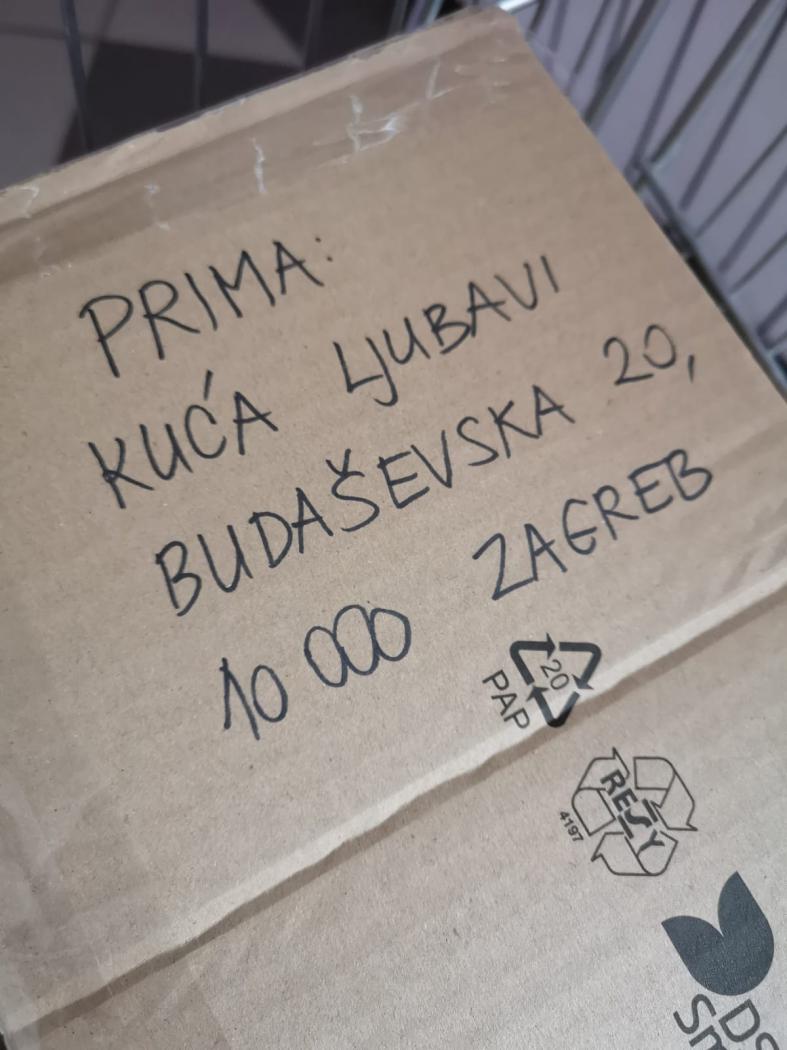 PRIMA:
KUĆA LJUBAVI
BUDAŠEVSKA 20,
10 000 ZAGREB
20
PAP
RESY
4197
DS